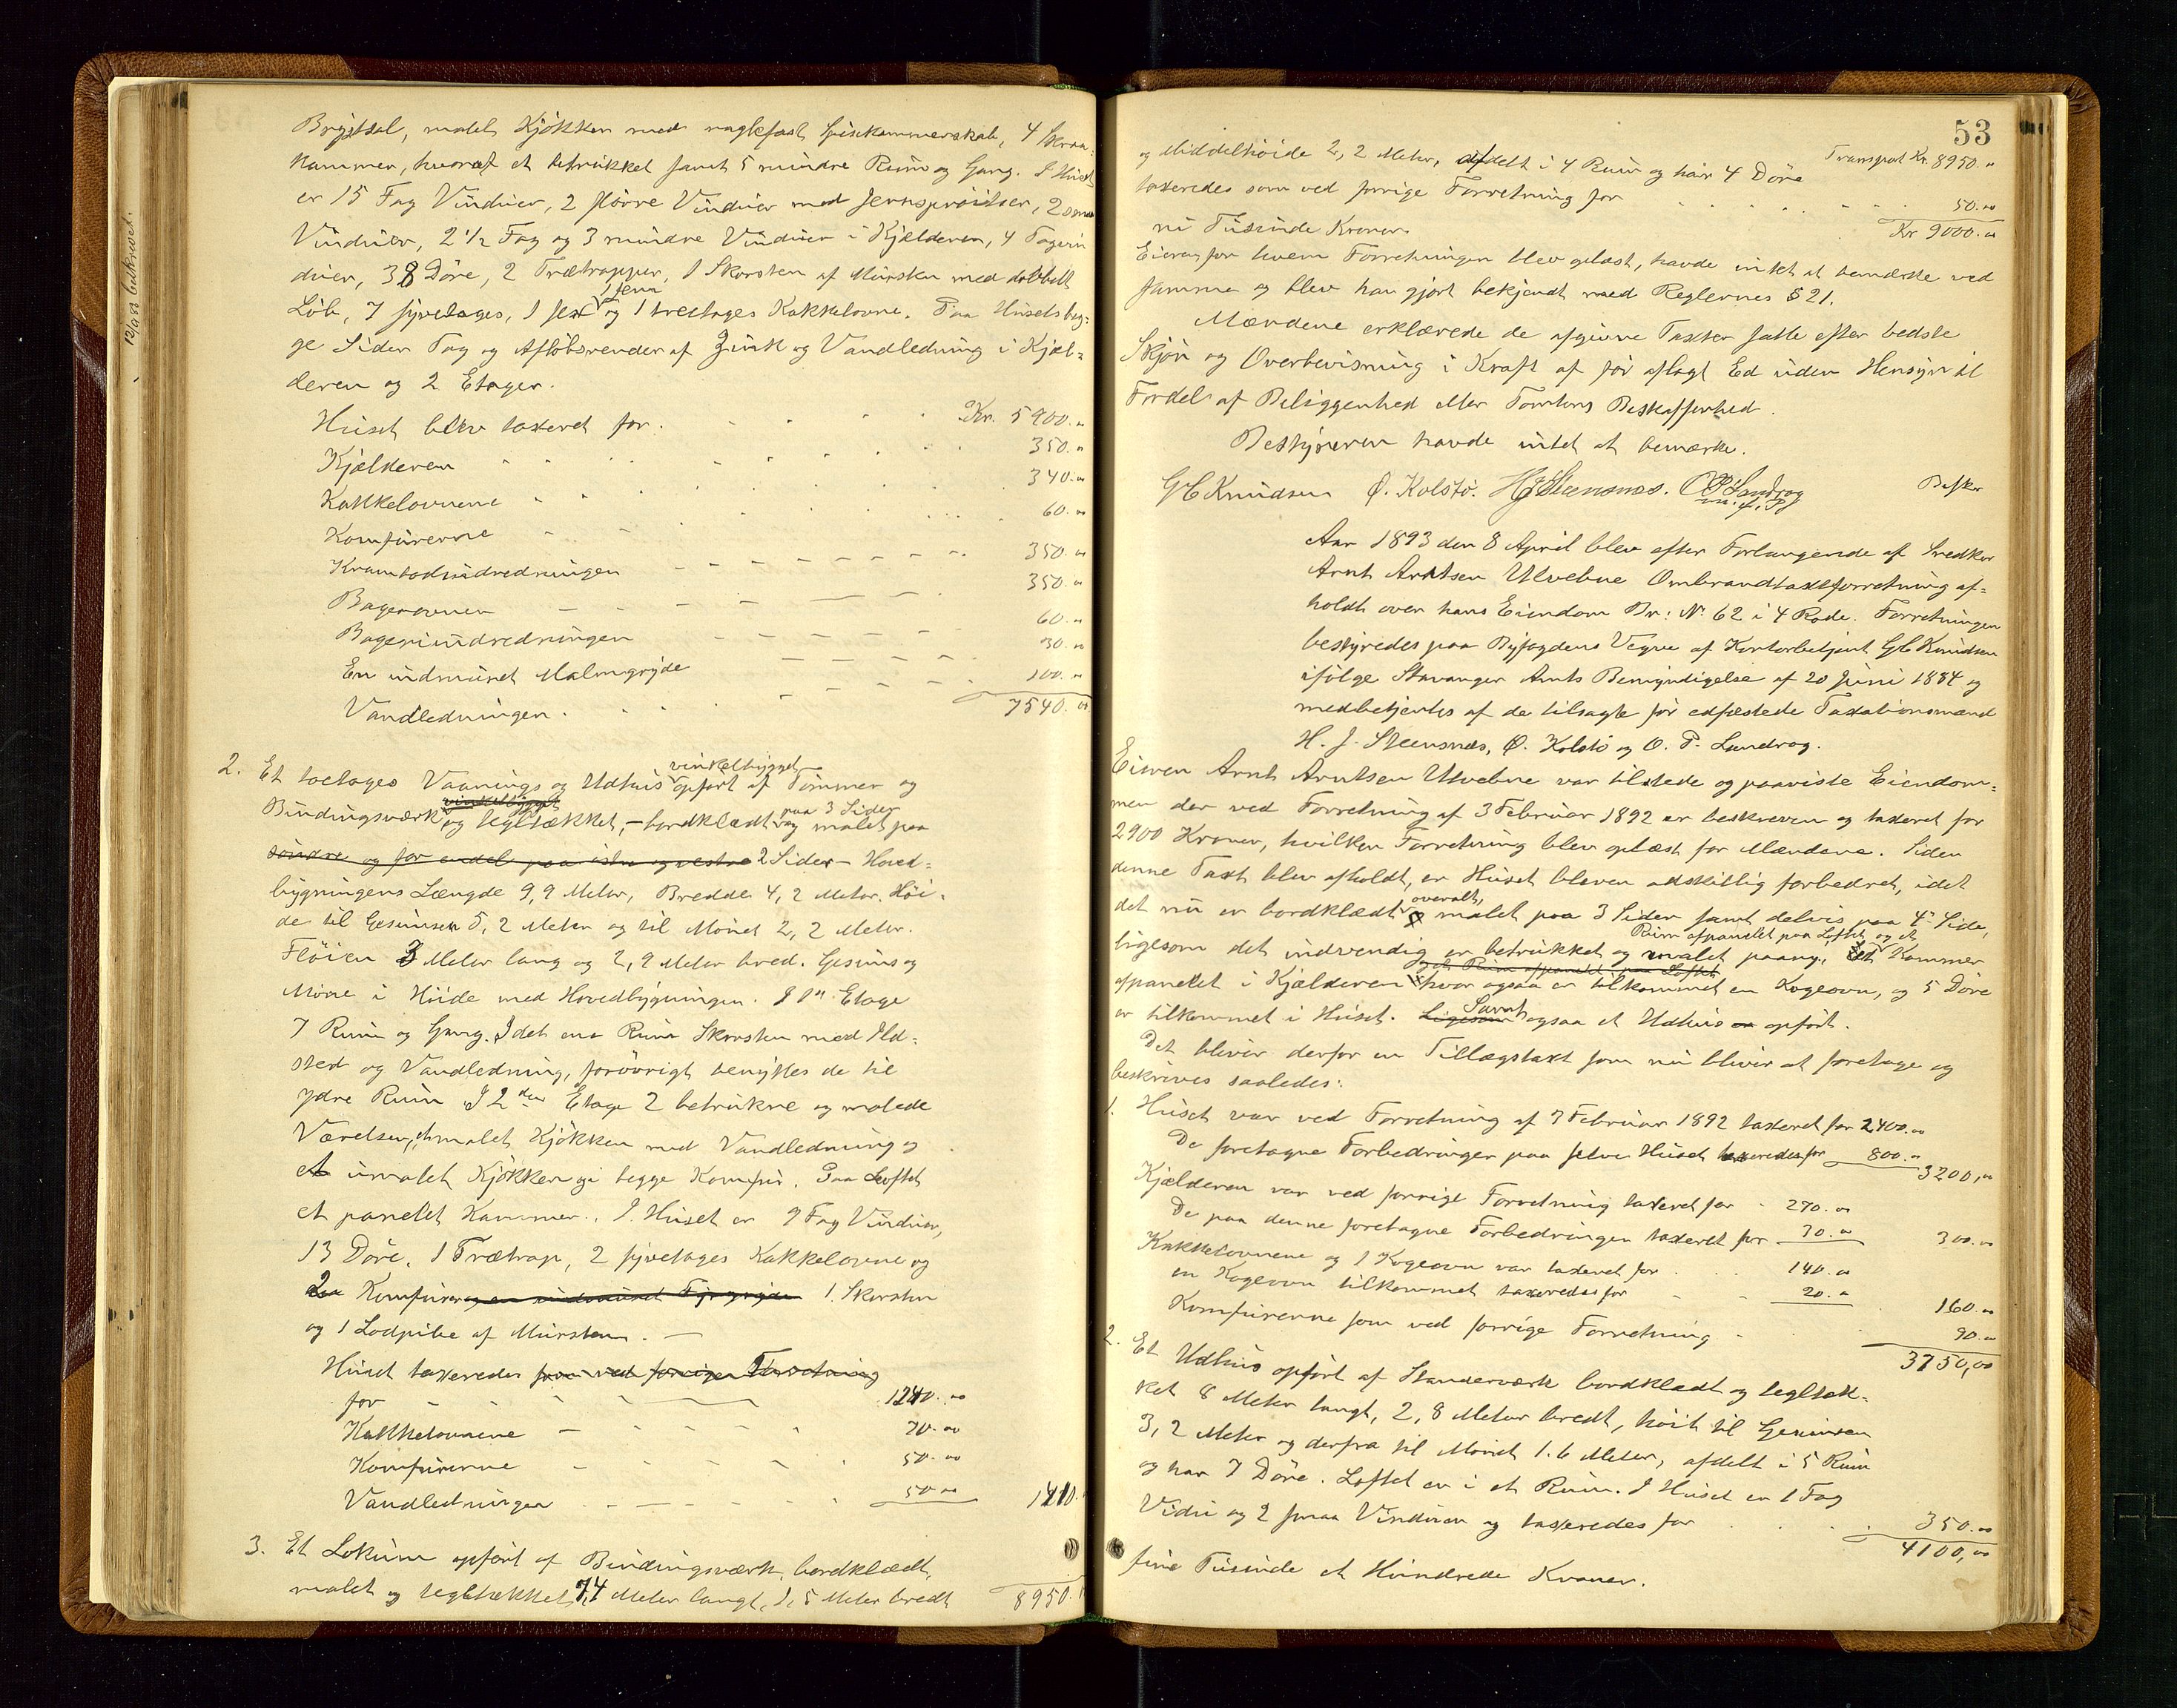 12/9 88 beskrevet.
Brystsal, malet Kjökken med naglefast Spisekammerskab, 4 Skraa-
kammer, hvoraf et betrukket samt 5 mindre Rum og Gang. I Huset
er 15 Fag Vinduer, 2 större Vinduer med Jernsprosser, 2 smaa
Vinduer, 2 1/2 Fag og 3 mindre Vinduer i Kjælderen, 4 Tagvin
duer, 38 Döre, 2 Trætrapper, 1 Skorsten af Mursten med dobbelt
Löb, 7 fyretages, 1 fem og 1 tretages Kakkelovne. Paa Husets beg-
ge Sider Tag og Aflöbsrender af Zink og Vandledning i Kjæl-
deren og 2 Etager.
Huset blev taxeret for Kr. 5900.00
Kjælderen 350.00
Kakkelovnene 340.00
Komfurerne 60.00
Krambodindredningen 350.00
Bagerovnen 350.00
Bageriindredningen 60.00
En indmuret Malmgryde 30.00
Vandledningen 100.00
7540.00
2. Et toetages Vaanings og Udhus vinkelbygget opfört af Tömmer og
Bindingsværk vinkelbygget og tegltækket, - bordklædt paa 3 Sider og malet paa
söndre og for endel paa östre og vestre 2 Sider - Hoved-
bygningens Længde 9,9 Meter, Bredde 4,2 Meter. Höi-
de til Gesimsen 5,2 Meter og til Mönet 2,2 Meter.
Flöien 3 Meter lang og 2,9 Meter bred. Gesims og
Möne i Höide med Hovedbygningen. I 1ste Etage
7 Rum og Gang. I det ene Rum Skorsten med Ild-
sted og Vandledning, forövrigt benyttes de til
ydre Rum. I 2den Etage 2 betrukne og malede
Værelser, et malet Kjökken med Vandledning og
et umalet Kjökken og i begge Komfur. Paa Loftet
et panelet Kammer. I Huset er 9 Fag Vinduer,
13 Döre, 1 Trætrap, 2 fyretages Kakkelovne og
2 Komfurer og en indmuret 1 Skorsten
og 1 Lodpibe af Mursten. -
Huset taxeredes som ved forrige Forretning
for 1240.00
Kakkelovnene 70.00
Komfurerne 50.00
Vandledningen 50.00 1410.
3. Et Lokum opfört af Bindingsværk, bordklædt,
malet og tegltækket, 7,4 Meter langt, 1,5 Meter bredt 8950.
53
Transport Kr. 8950.00
og Middelhöide 2,2 Meter, afdelt i 4 Rum og har 4 Döre
taxeredes som ved forrige Forretning for 50.00
Kr 9000.00
ni Tusinde Kroner.
Eieren for hvem Forretningen blev oplæst, havde intet at bemærke ved
samme og blev han gjort bekjendt med Reglernes § 21.
Mændene erklærede de afgivne Taxter satte efter bedste
Skjön og Overbevisning i Kraft af för aflagt Ed uden Hensyn til
Fordel af Beliggenhed eller Tomtens Beskaffenhed.
Bestyreren havde intet at bemærke.
GC Knudsen Ö. Kolstö. HJSteensnæs. OPLandrog
m. f. P.
Besker
Aar 1893 den 8 April blev efter Forlangende af Snedker
Arnt Arntsen Ulvebne Ombrandtaxtforretning af-
holdt over hans Eiendom Br: No 62 i 4 Rode. Forretningen
bestyredes paa Byfogdens Vegne af Kontorbetjent GC Knudsen
ifölge Stavanger Amts Bemyndigelse af 20 Juni 1884 og
medbetjentes af de tilsagte för edfæstede Taxationsmænd
H. J. Steensnæs, Ö. Kolstö og O. P. Landrog.
Eieren Arnt Arntsen Ulvebne var tilstede og paaviste Eiendom-
men der ved Forretning af 3 Februar 1892 er beskreven og taxeret for
2900 Kroner, hvilken Forretning blev oplæst for Mændene. Siden
denne Taxt blev afholdt, er Huset bleven adskillig forbedret, idet
det nu er bordklædt overalt, malet paa 3 Sider samt delvis paa 4de Side,
ligesom det indvendig er betrukket og malet paany. Et Rum afpanelet paa Loftet og et Kammer
afpanelet i Kjælderen og et Rum afpanelet paa Loftet hvor ogsaa er tilkommet en Kogeovn, og 5 Döre
er tilkommet i Huset. Ligesom Samt ogsaa et Udhus er opfört.
Det bliver derfor en Tillægstaxt som nu bliver at foretage og
beskrives saaledes:
1. Huset var ved Forretning af 3 Februar 1892 taxeret for 2400.00
De foretagne Forbedringer paa selve Huset taxeredes for 800.00 3200,00
Kjælderen var ved forrige Forretning taxeret for 270.00
De paa denne foretagne Forbedringen taxeret for 30.00 300.00
Kakkelovnene og 1 Kogeovn var taxeret for 140.00
en Kogeovn tilkommet taxeredes for 20.00 160.00
Komfurerne som ved forrige Forretning 90.00
3750,00
2. Et Udhus opfört af Standerværk bordklædt og tegltæk-
ket 8 Meter langt, 2,8 Meter bredt, höit til Gesimsen
3,2 Meter og derfra til Mönet 1.6 Meter, afdelt i 5 Rum
og har 7 Döre. Loftet er i et Rum. I Huset er 1 Fag
Vidu og 2 smaa Vinduer og taxeredes for 350.00
4100,00
fire Tusinde et Hundrede Kroner.